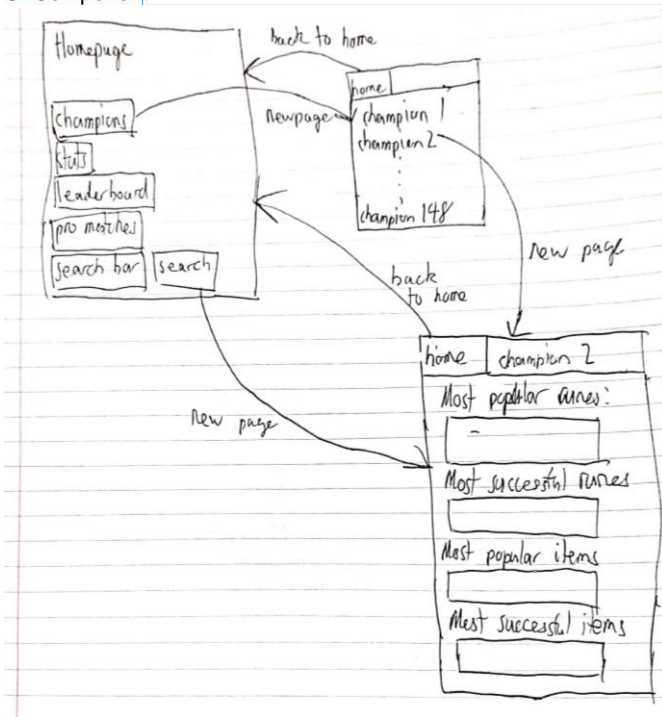 Homepage
champions
stats
leaderboard
pro matches
search bar
search
back to home
newpage
home
champion 1
champion 2
champion 148
new page
back
to home
new page
home
champion 2
Most popular runes:
Most successful runes
Most popular items
Most successful items